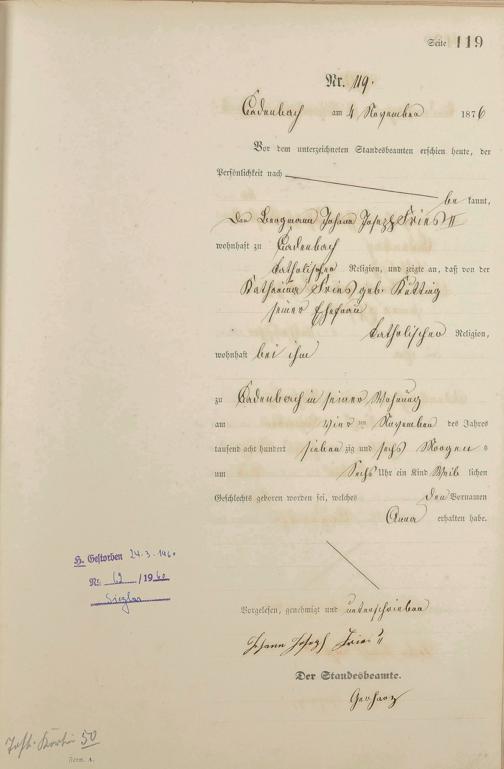 Seite 119
Nr. 119.
Cadenbach am 4 November 1876
Vor dem unterzeichneten Standesbeamten erschien heute, der
Persönlichkeit nach
be kannt,
Der Bergmann Johann Joseph Fries II
wohnhaft zu Cadenbach
katholischer Religion, und zeigte an, daß von der
Katharina Fries geb. Kütting
seiner Ehefrau
katholischer Religion,
wohnhaft bei ihm
zu Cadenbach in seiner Wohnung
am vier ten November des Jahres
tausend acht hundert sieben zig und sechs Morgens
um Sechs Uhr ein Kind Weib lichen
Geschlechts geboren worden sei, welches den Vornamen
Anna erhalten habe.
H. Gestorben 24.3.1960
Nr. 62 / 1960
Vorgelesen, genehmigt und unterschrieben
Johann Joseph Fries II
Der Standesbeamte.
Gerharz
50
Form. A.